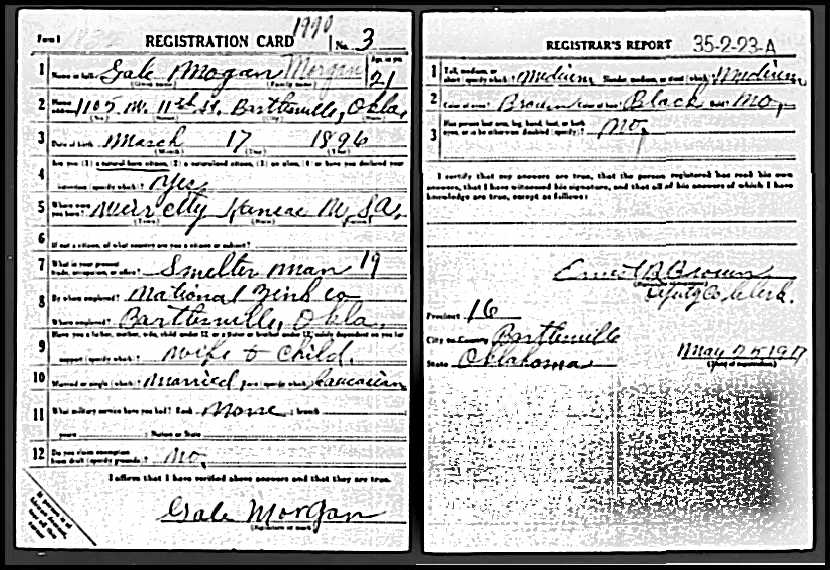 Form 1 REGISTRATION CARD 1990 No. 3
1 Name in full Gale Mogan Morgan Age, in yrs. 21
(Given name) (Family name)
2 Home address 1105 W. 11th St. Bartlesville, Okla.
(No.) (Street) (City) (State)
3 Date of birth March 17 1896
(Month) (Day) (Year)
4 Are you (1) a natural born citizen, (2) a naturalized citizen, (3) an alien, (4) or have you declared your
intention (specify which)? Yes
5 Where were you born? Kansas U.S.A.
(Town) (State) (Nation)
6 If not a citizen, of what country are you a citizen or subject?
7 What is your present trade, occupation, or office? Smelter man 19
8 By whom employed? National Zink Co
Where employed? Bartlesville, Okla.
9 Have you a father, mother, wife, child under 12, or a sister or brother under 12, solely dependent on you for
support (specify which)? Wife & Child.
10 Married or single (which)? Married Race (specify which)? Caucasian
11 What military service have you had? Rank None ; branch
years ; Nation or State
12 Do you claim exemption from draft (specify grounds)? No.
I affirm that I have verified above answers and that they are true.
Gale Morgan
(Signature or mark)
REGISTRAR'S REPORT 35-2-23-A
1 Tall, medium, or short (specify which)? Medium Slender, medium, or stout (which)? Medium
2 Color of eyes? Brown Color of hair? Black Bald? No.
3 Has person lost arm, leg, hand, foot, or both eyes, or is he otherwise disabled (specify)? No.
I certify that my answers are true, that the person registered has read his own
answers, that I have witnessed his signature, and that all of his answers of which I have
knowledge are true, except as follows:
Ernest A. Brown
Deputy Co. Clerk.
Precinct 16
City or County Bartlesville
State Oklahoma May 25 1917
(Date of registration)